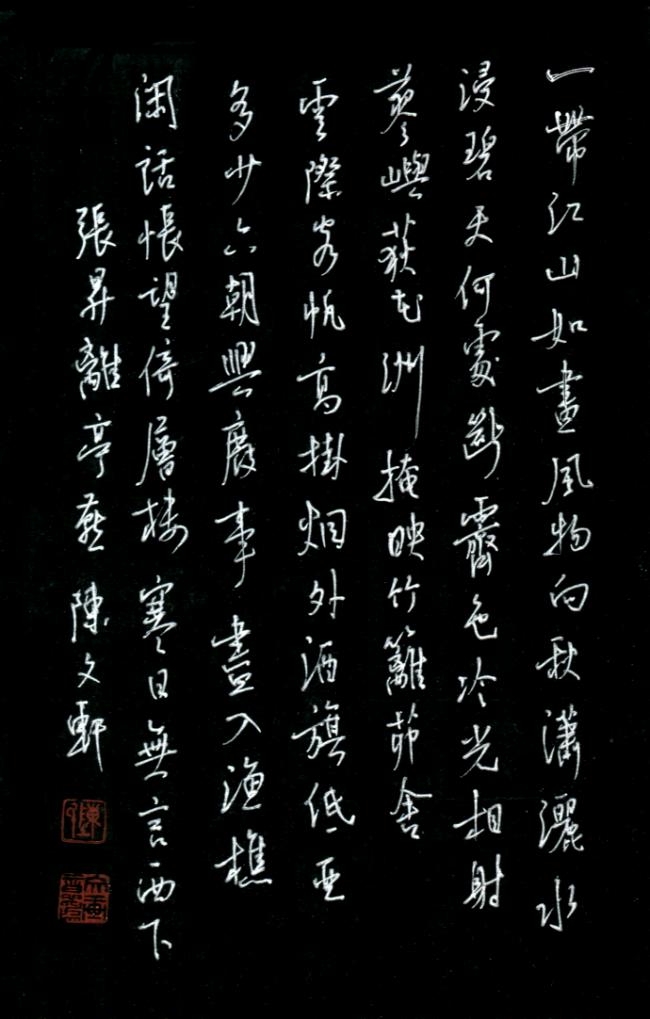 一帶江山如畫風物向秋瀟灑水
浸碧天何處斷霽色冷光相射
蓼嶼荻花洲掩映竹籬茆舍
雲際客帆高掛烟外酒旗低亞
多少六朝興廢事盡入漁樵
閑話悵望倚層樓寒日無言西下
張昇離亭燕 陳文